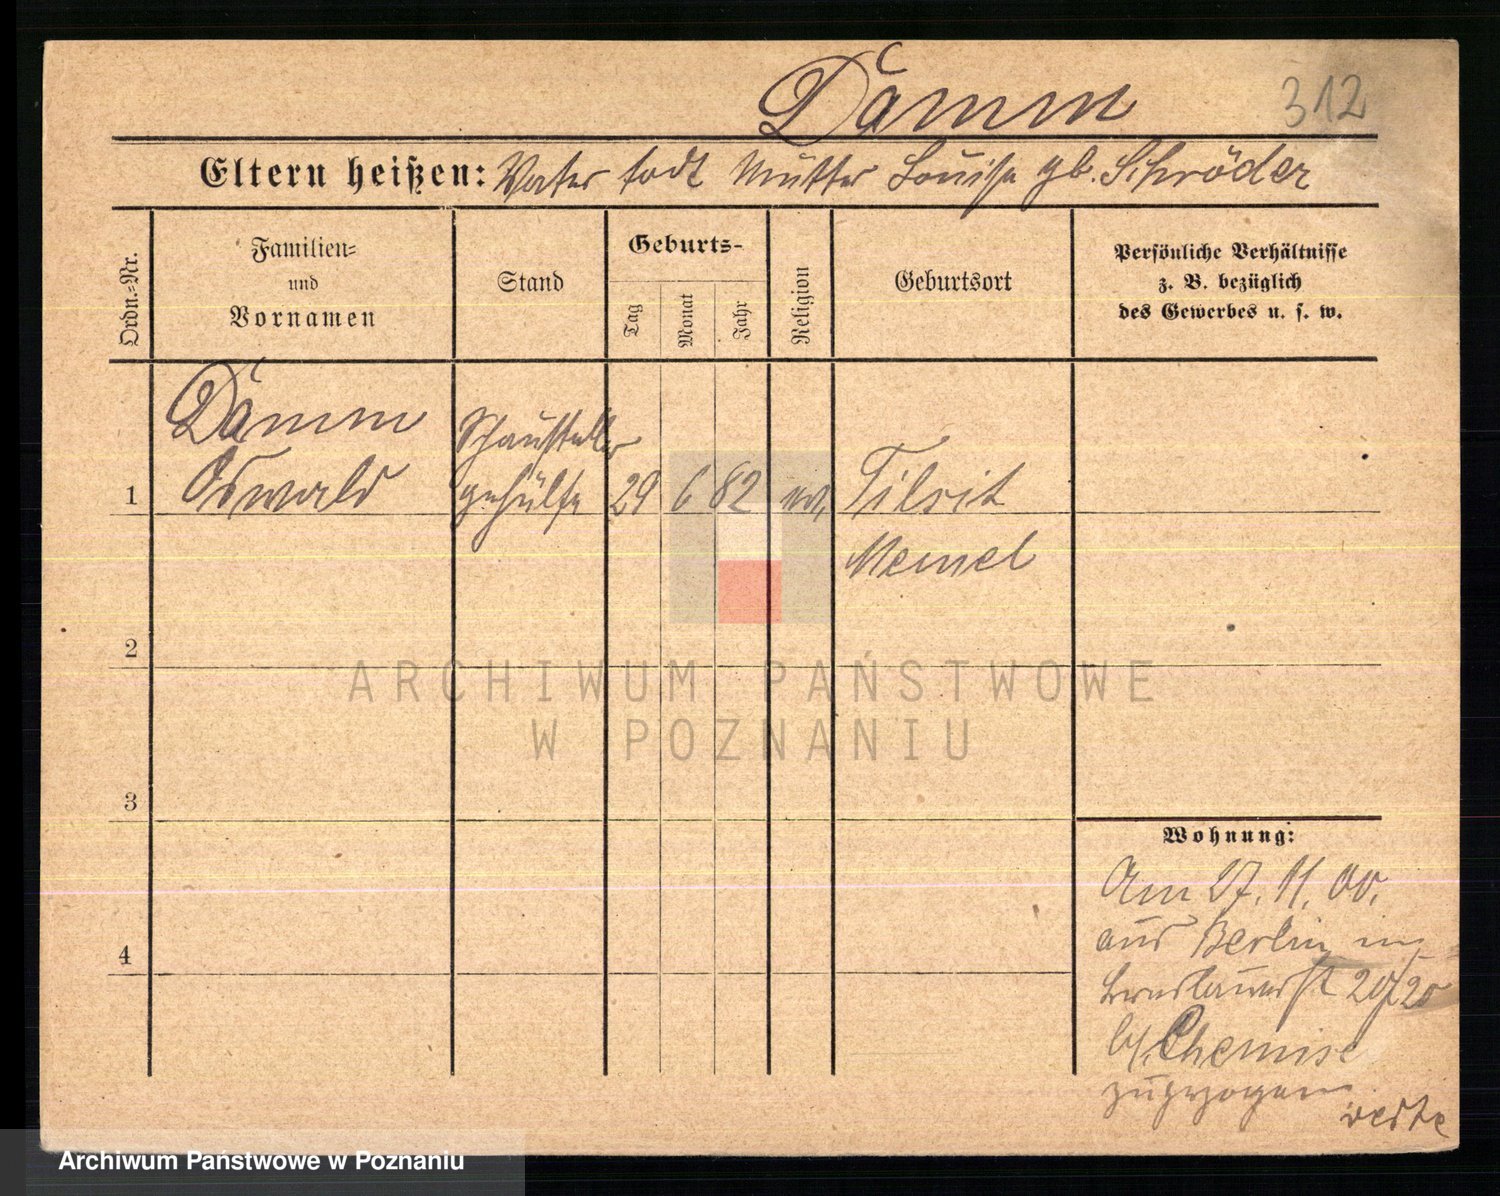 Dämm
312
Eltern heißen: Vater todt Mutter Louise gb. Schröder
Ordn.-Nr.
Familien- und Vornamen
Stand
Geburts-
Tag
Monat
Jahr
Religion
Geburtsort
Persönliche Verhältnisse
z. B. bezüglich
des Gewerbes u. s. w.
Dämm
Oswald
Schausteller
gehülfe
1
29
6
82
ev.
Tilsit
Memel
2
3
4
Wohnung:
Am 27. 11. 00.
aus Berlin in
Breslauerst 20/20
b/ Chemise
zugezogen
ARCHIWUM PAŃSTWOWE
W POZNANIU
Archiwum Państwowe w Poznaniu